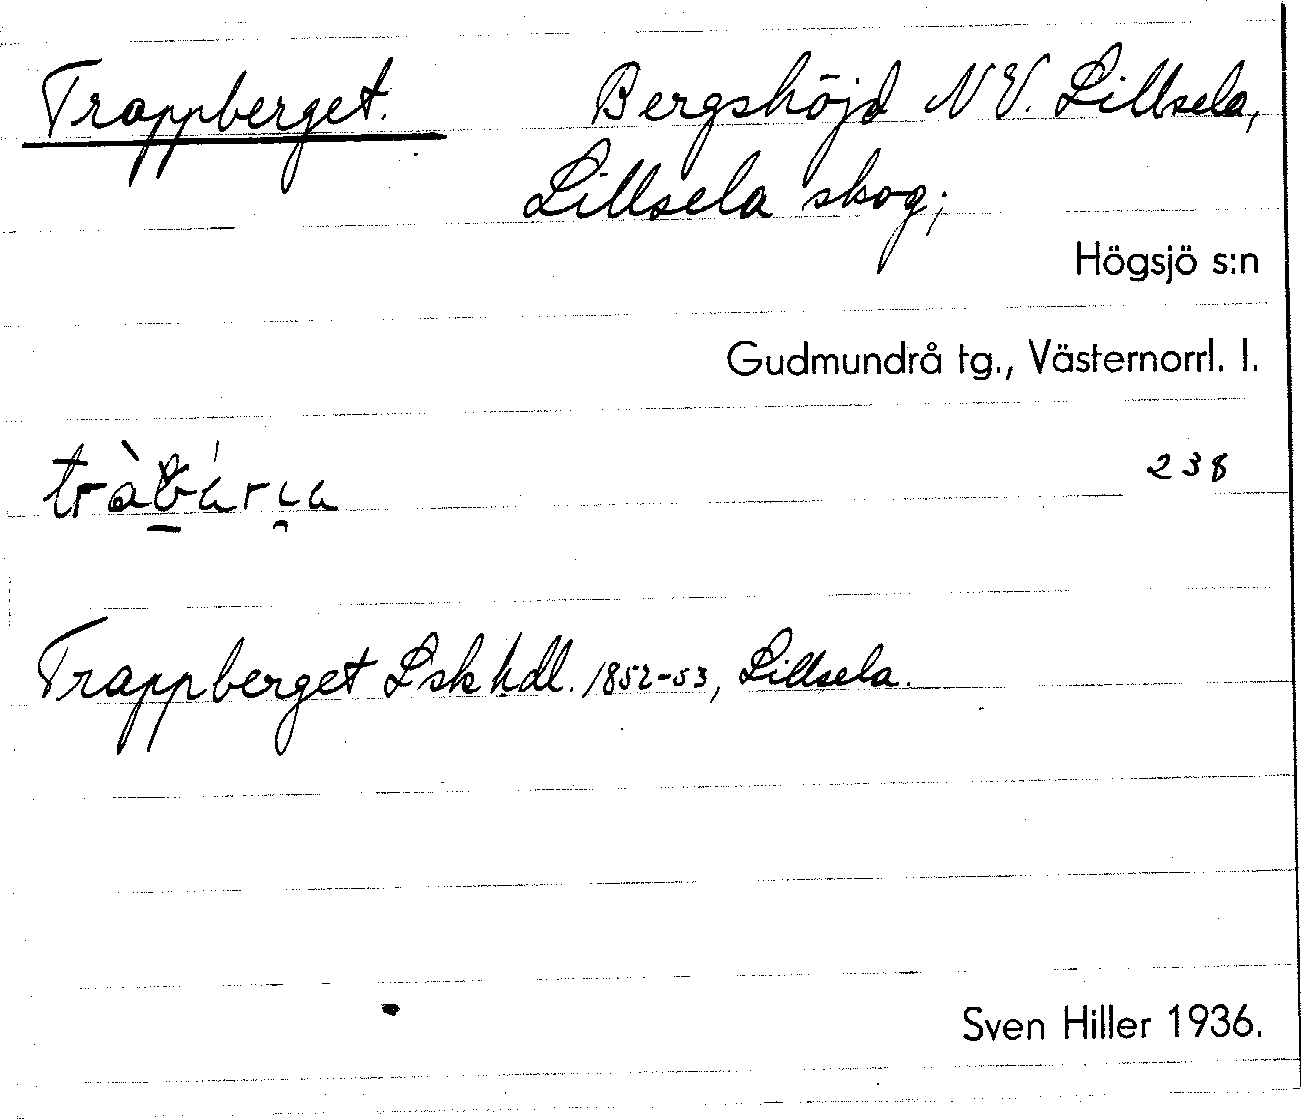 Trappberget. Bergshöjd NV. Lillsela,
Lillsela skog;
Högsjö s:n
Gudmundrå tg., Västernorrl. l.
238
Trappberget Lsk hdl. 1852-53, Lillsela.
Sven Hiller 1936.